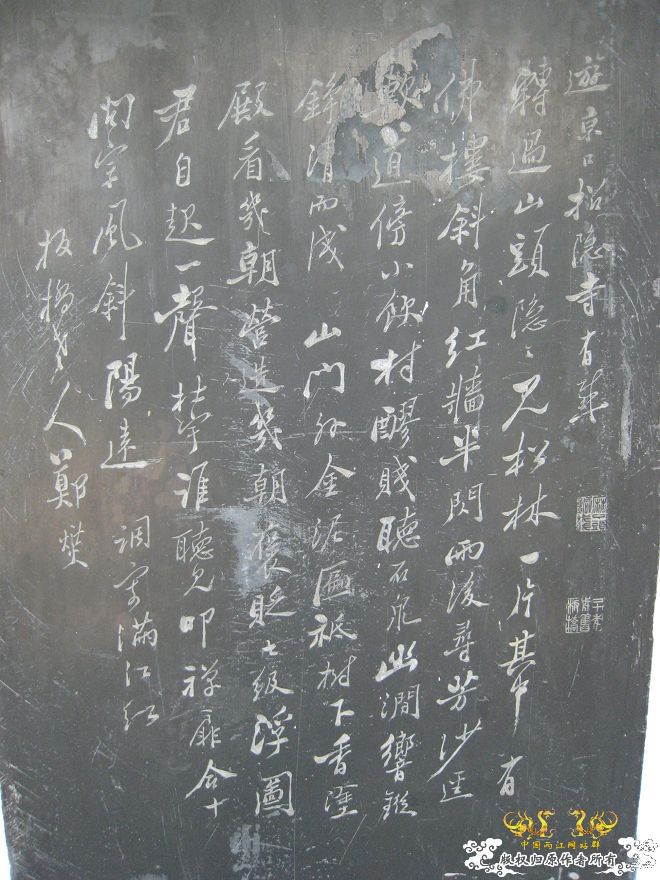 遊京口招隐寺有
轉過山頭隐〻見松林一片其中有
佛樓斜角红牆半閃雨後尋芳沙逕
軟道傍小飲村醪賤聽石泉幽澗響鏦
錚清而淺 山門外金泥匾祇樹下香
殿看幾朝營造幾朝褒貶七級浮圖
君自起一聲誰聽見叩禪扉合十
問宗風斜陽遠 調寄滿江红
板橋老人鄭燮
中国两江网站群
版权归原作者所有